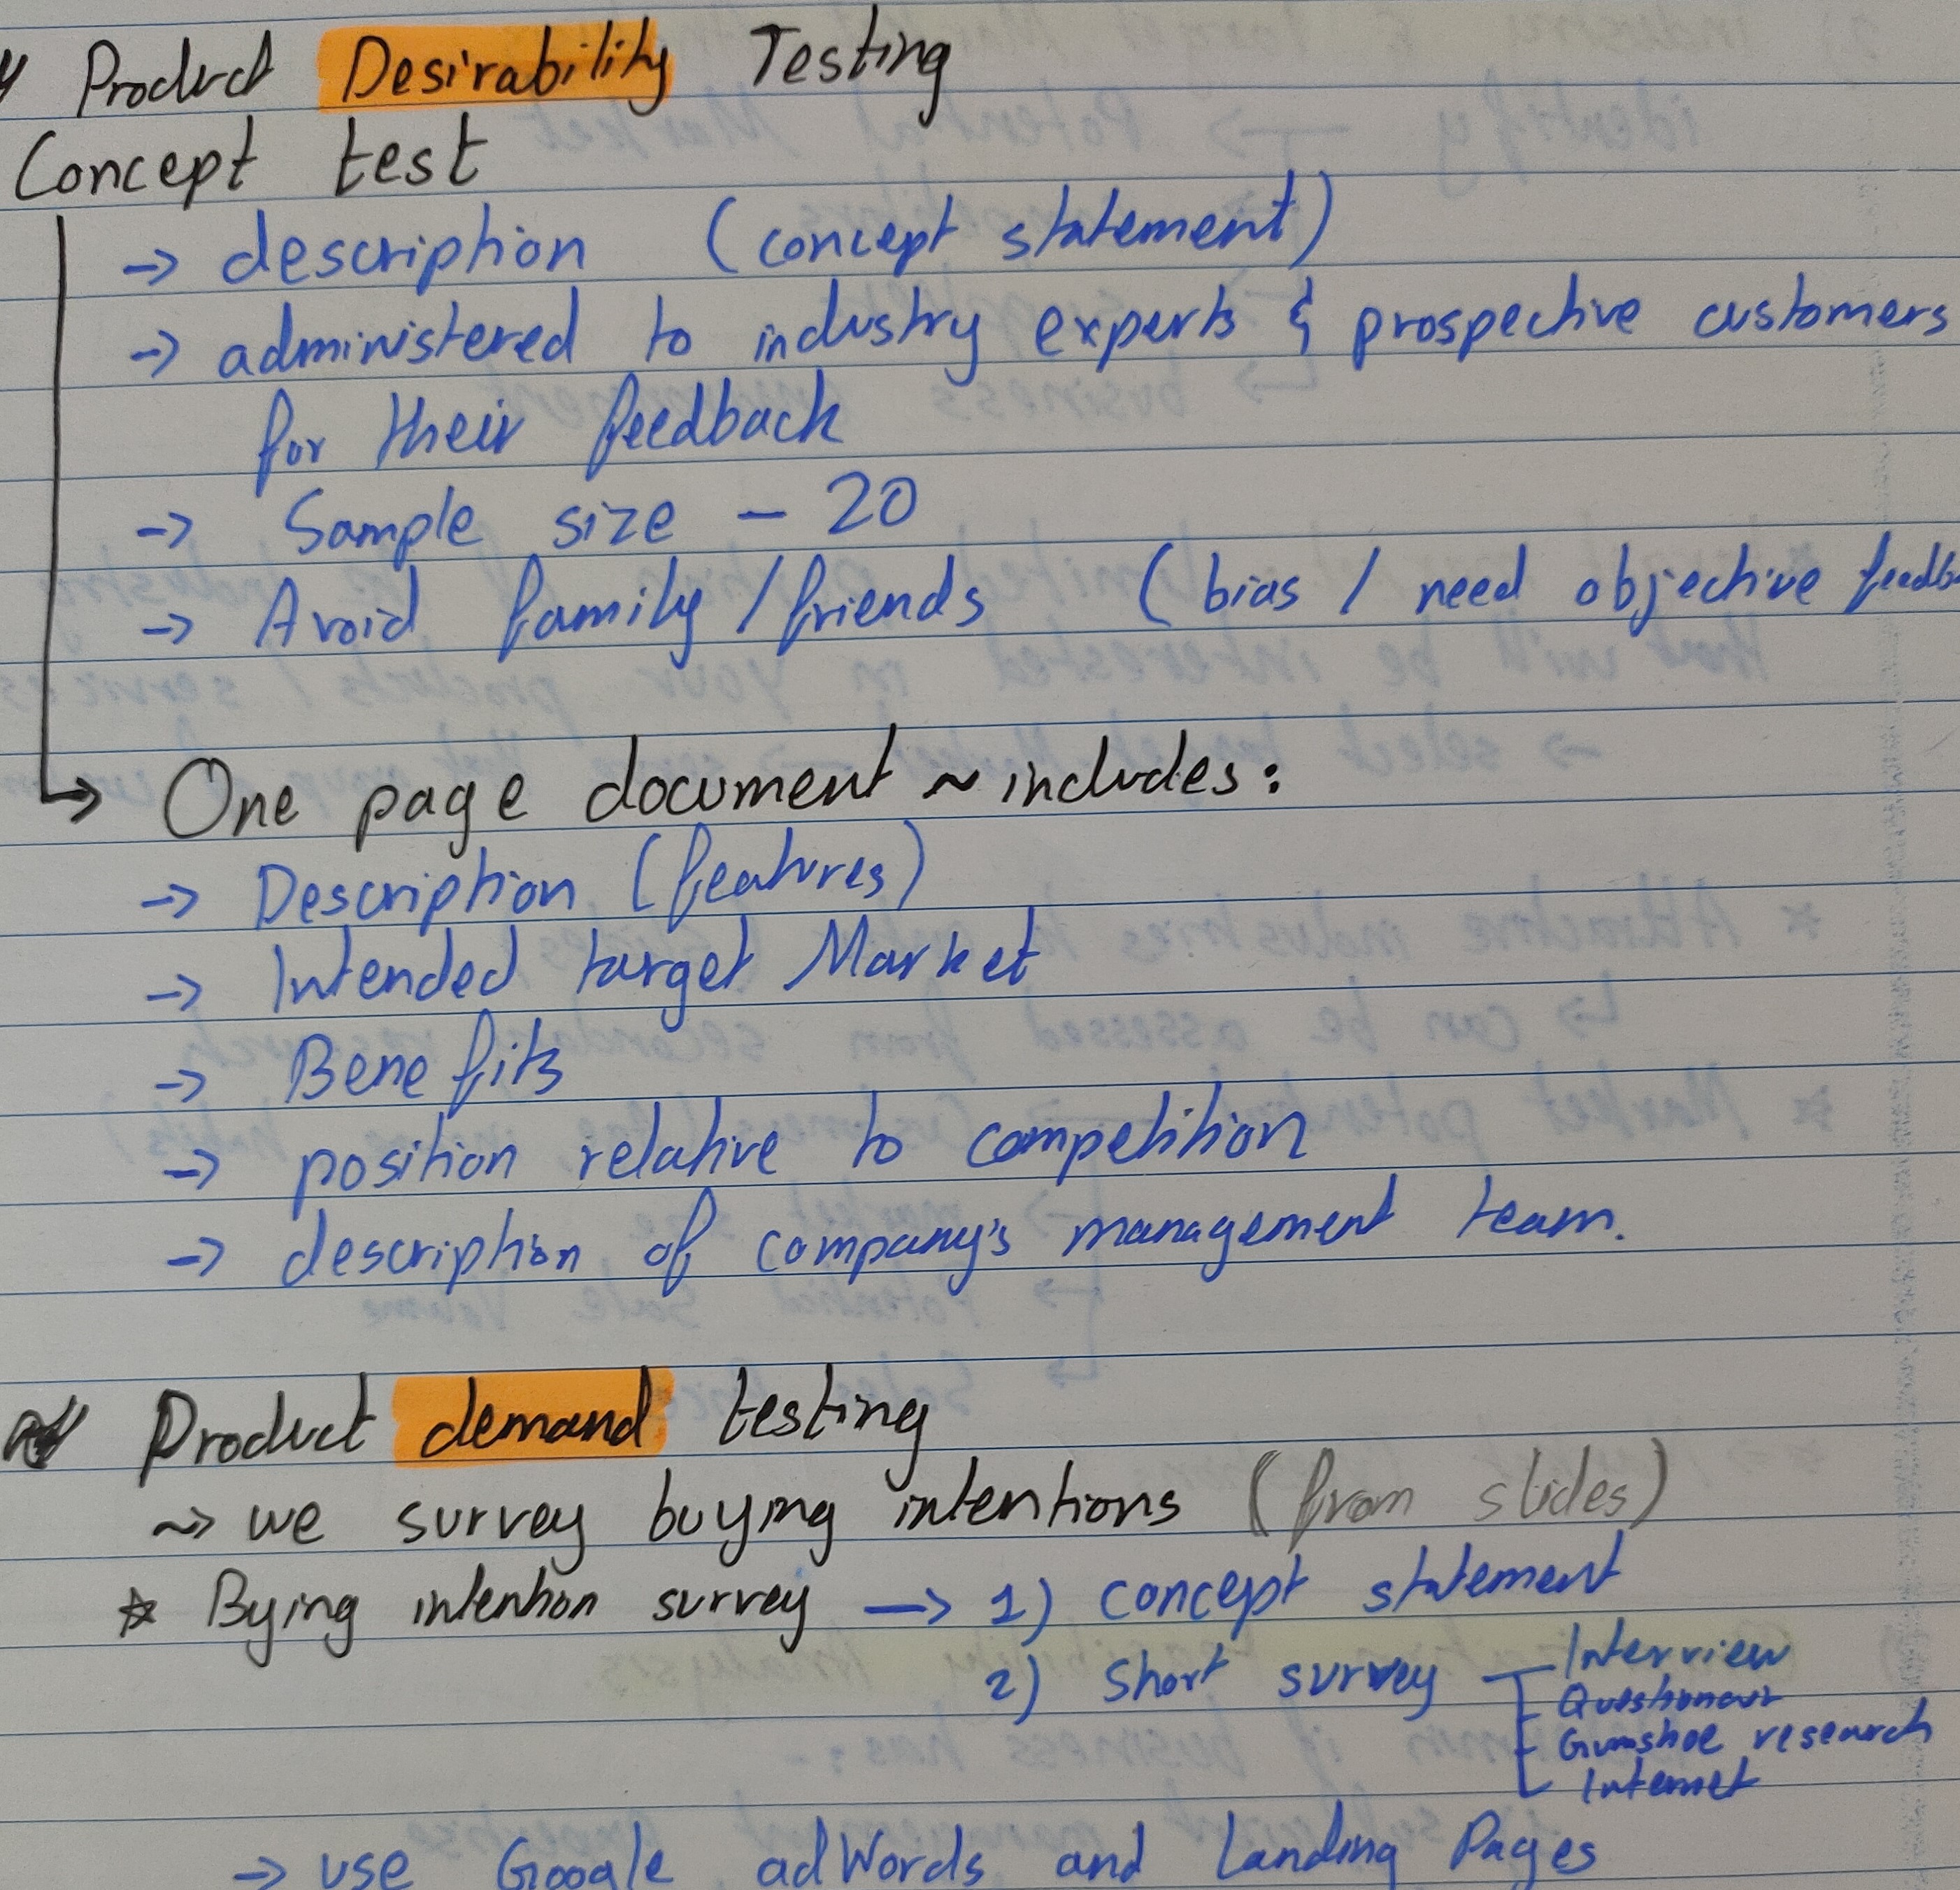 Product Desirability Testing
Concept test
→ description (concept statement)
→ administered to industry experts & prospective customers
for their feedback
→ Sample size - 20
→ Avoid family/friends (bias / need objective feedba
→ One page document ~ includes:
→ Description (features)
→ Intended target Market
→ Benefits
→ position relative to competition
→ description of company's management team.
Product demand testing
~> we survey buying intentions (from slides)
☆ Bying intention survey → 1) concept statement
2) short survey
Interview
Gumshoe research
Internet
→ use Google adWords and Landing Pages